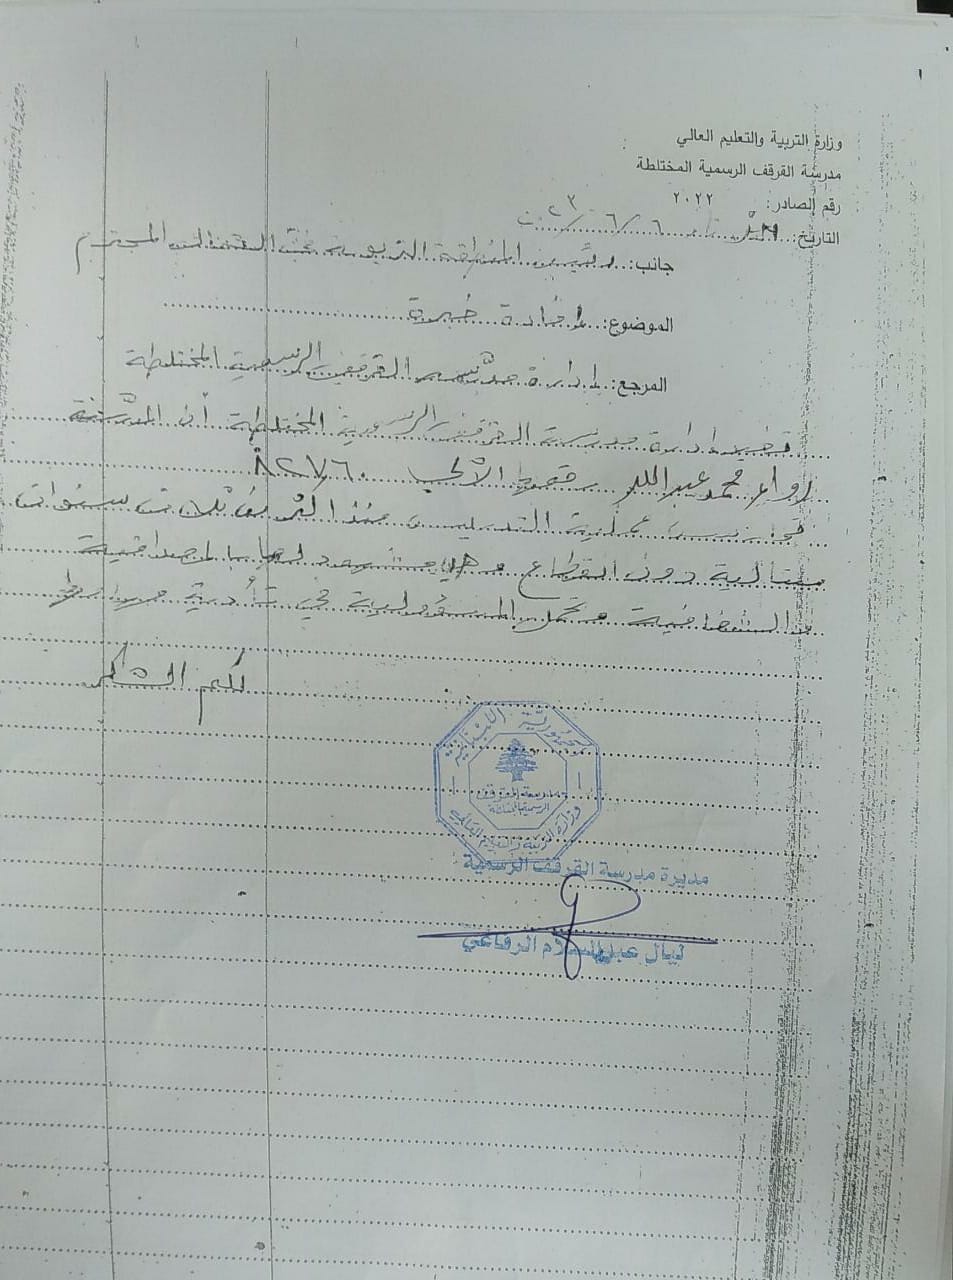 وزارة التربية والتعليم العالي
مدرسة القرقف الرسمية المختلطة
رقم الصادر: ٢٠٢٢
التاريخ: ٦/٦/٢٣
جانب: رئيس المنطقة التربوية في الشمال المحترم
الموضوع: إفادة خبرة
المرجع: إدارة مدرسة القرقف الرسمية المختلطة
تفيد إدارة مدرسة القرقف الرسمية المختلطة أن المدرّسة
محمد عبدالله رقمها الآلي ٨٢٧٦٠
عملية التدريس منذ أكثر من ثلاث سنوات
متتالية دون انقطاع و مشهود لها بالمصداقية
و الشفافية و تحمل المسؤولية في تأدية
لكم الشكر
الجمهورية اللبنانية
مدرسة القرقف
الرسمية المختلطة
وزارة التربية والتعليم العالي
مديرة مدرسة القرقف الرسمية
ليال عبدالسلام الرفاعي